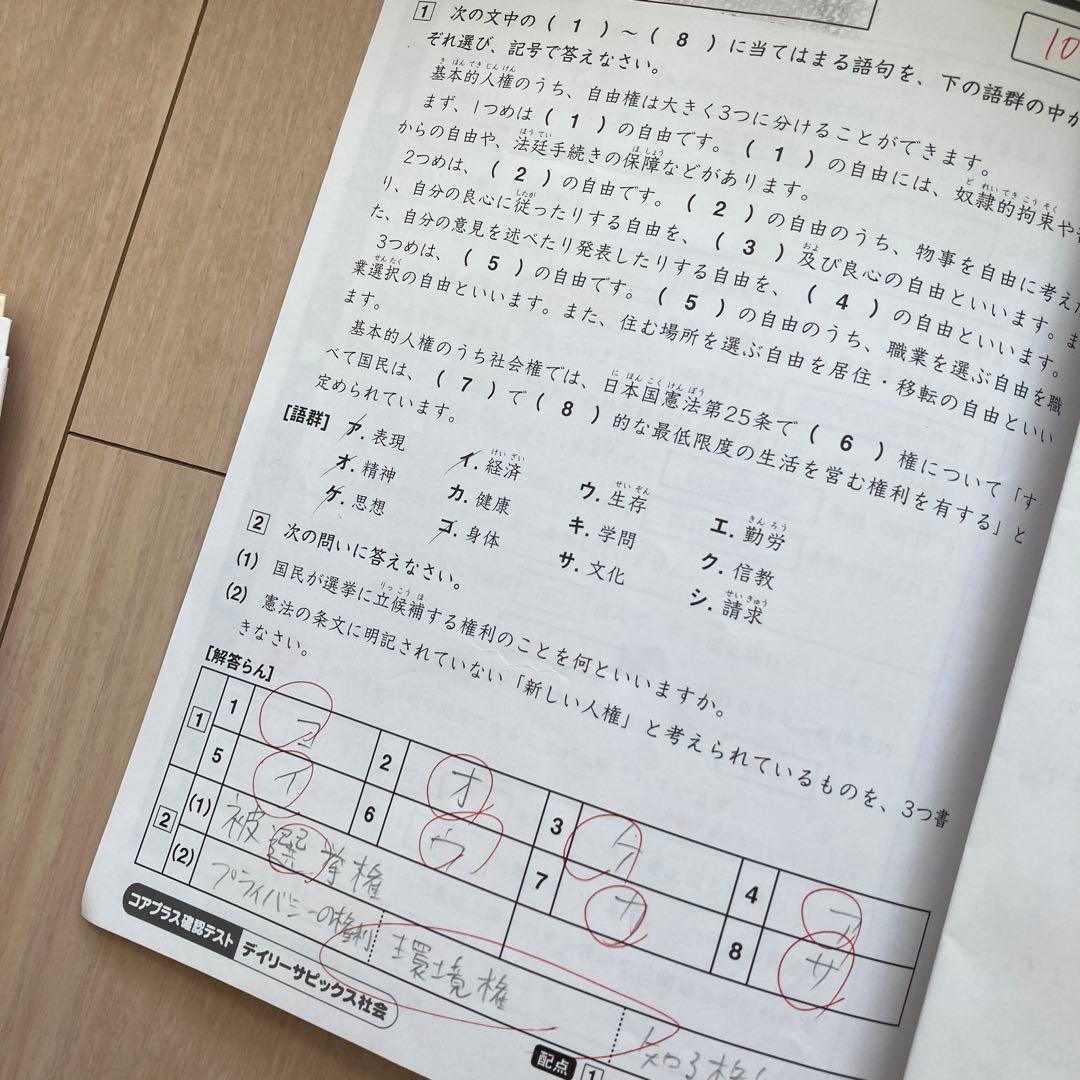 1 次の文中の（ 1 ）～（ 8 ）に当てはまる語句を、下の語群の中か
ぞれ選び、記号で答えなさい。
10
基本的人権のうち、自由権は大きく3つに分けることができます。
まず、1つめは（ 1 ）の自由です。（ 1 ）の自由には、奴隷的拘束や
からの自由や、法廷手続きの保障などがあります。
2つめは、（ 2 ）の自由です。（ 2 ）の自由のうち、物事を自由に考えた
り、自分の良心に従ったりする自由を、（ 3 ）及び良心の自由といいます。ま
た、自分の意見を述べたり発表したりする自由を、（ 4 ）の自由といいます。
3つめは、（ 5 ）の自由です。（ 5 ）の自由のうち、職業を選ぶ自由を職
業選択の自由といいます。また、住む場所を選ぶ自由を居住・移転の自由といい
ます。
基本的人権のうち社会権では、日本国憲法第25条で（ 6 ）権について「す
べて国民は、（ 7 ）で（ 8 ）的な最低限度の生活を営む権利を有する」と
定められています。
[語群] ア．表現 イ．経済 ウ．生存 エ．勤労
オ．精神 カ．健康 キ．学問 ク．信教
ケ．思想 コ．身体 サ．文化 シ．請求
2 次の問いに答えなさい。
(1) 国民が選挙に立候補する権利のことを何といいますか。
(2) 憲法の条文に明記されていない「新しい人権」と考えられているものを、3つ書
きなさい。
[解答らん]
1 1 コ 2 オ 3 ケ 4 ア
5 イ 6 ウ 7 カ 8 サ
2 (1) 被選挙権
(2) プライバシーの権利 環境権 知る権
コアプラス確認テスト デイリーサピックス社会
配点 1